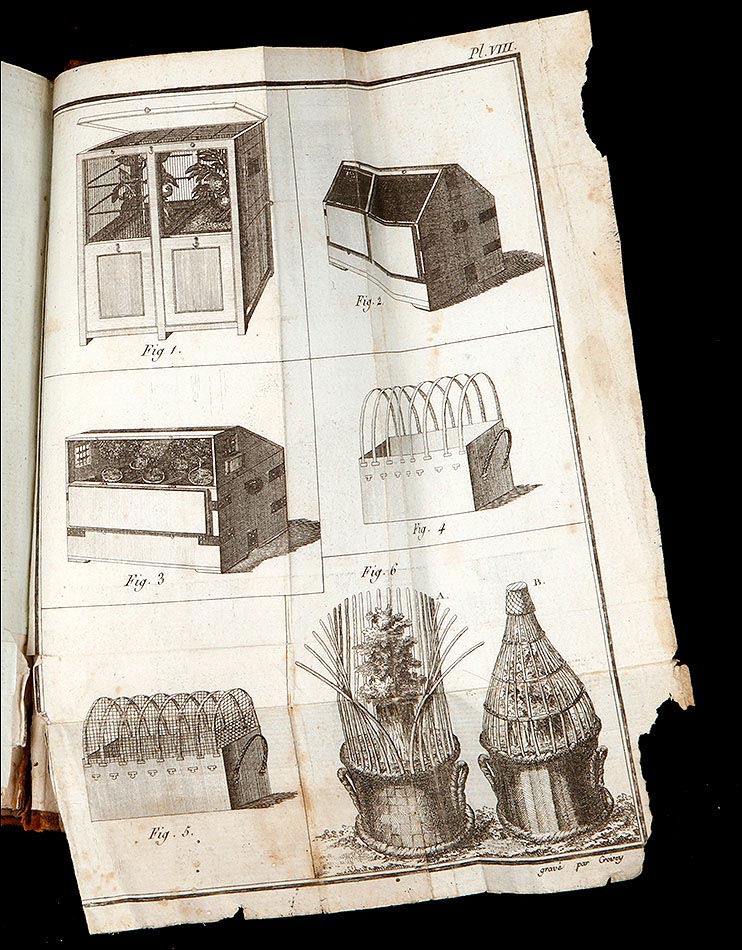 Pl. VIII.
Fig 1.
Fig. 2.
Fig. 3
Fig. 4
Fig. 6
A.
B.
Fig. 5.
gravé par